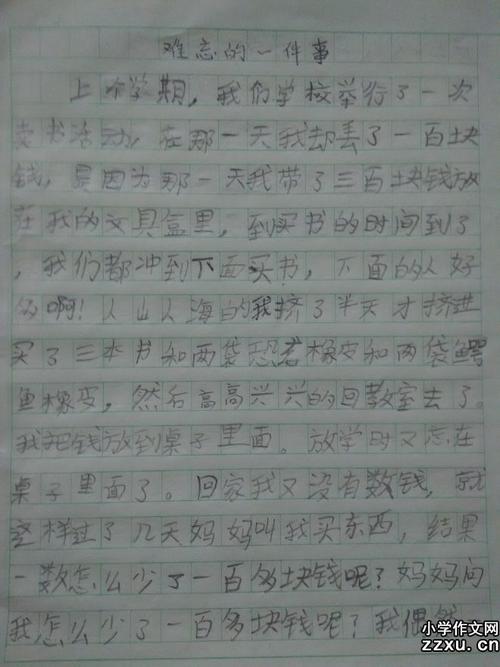 难忘的一件事
上个学期，我们学校举行了一次
卖书活动，在那一天我却丢了一百块
钱，是因为那一天我带了三百块钱放
在我的文具盒里，到买书的时间到了
，我们都冲到下面买书，下面的人好
多啊！人山人海的我挤了半天才挤进
买了三本书和两袋恐龙橡皮和两袋鳄
鱼橡皮，然后高高兴兴的回教室去了。
我把钱放到桌子里面。放学时又忘在
桌子里面了。回家我又没有数钱，就
这样过了几天妈妈叫我买东西，结果
一数怎么少了一百多块钱呢？妈妈问
我怎么少了一百多块钱呢？我偶然
小学作文网
zzxu.cn